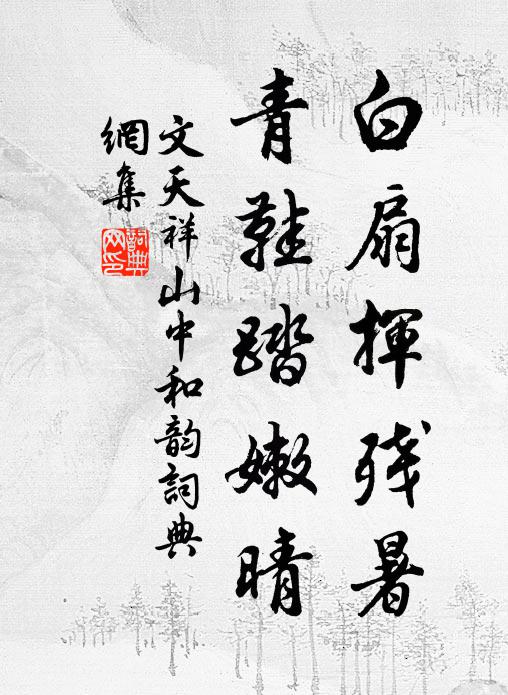 白扇揮残暑
青鞋踏嫩晴
文天祥山中和韵詞典
網集
詞典
网印